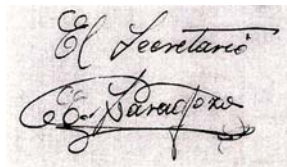 El Secretario
E. Zaragoza